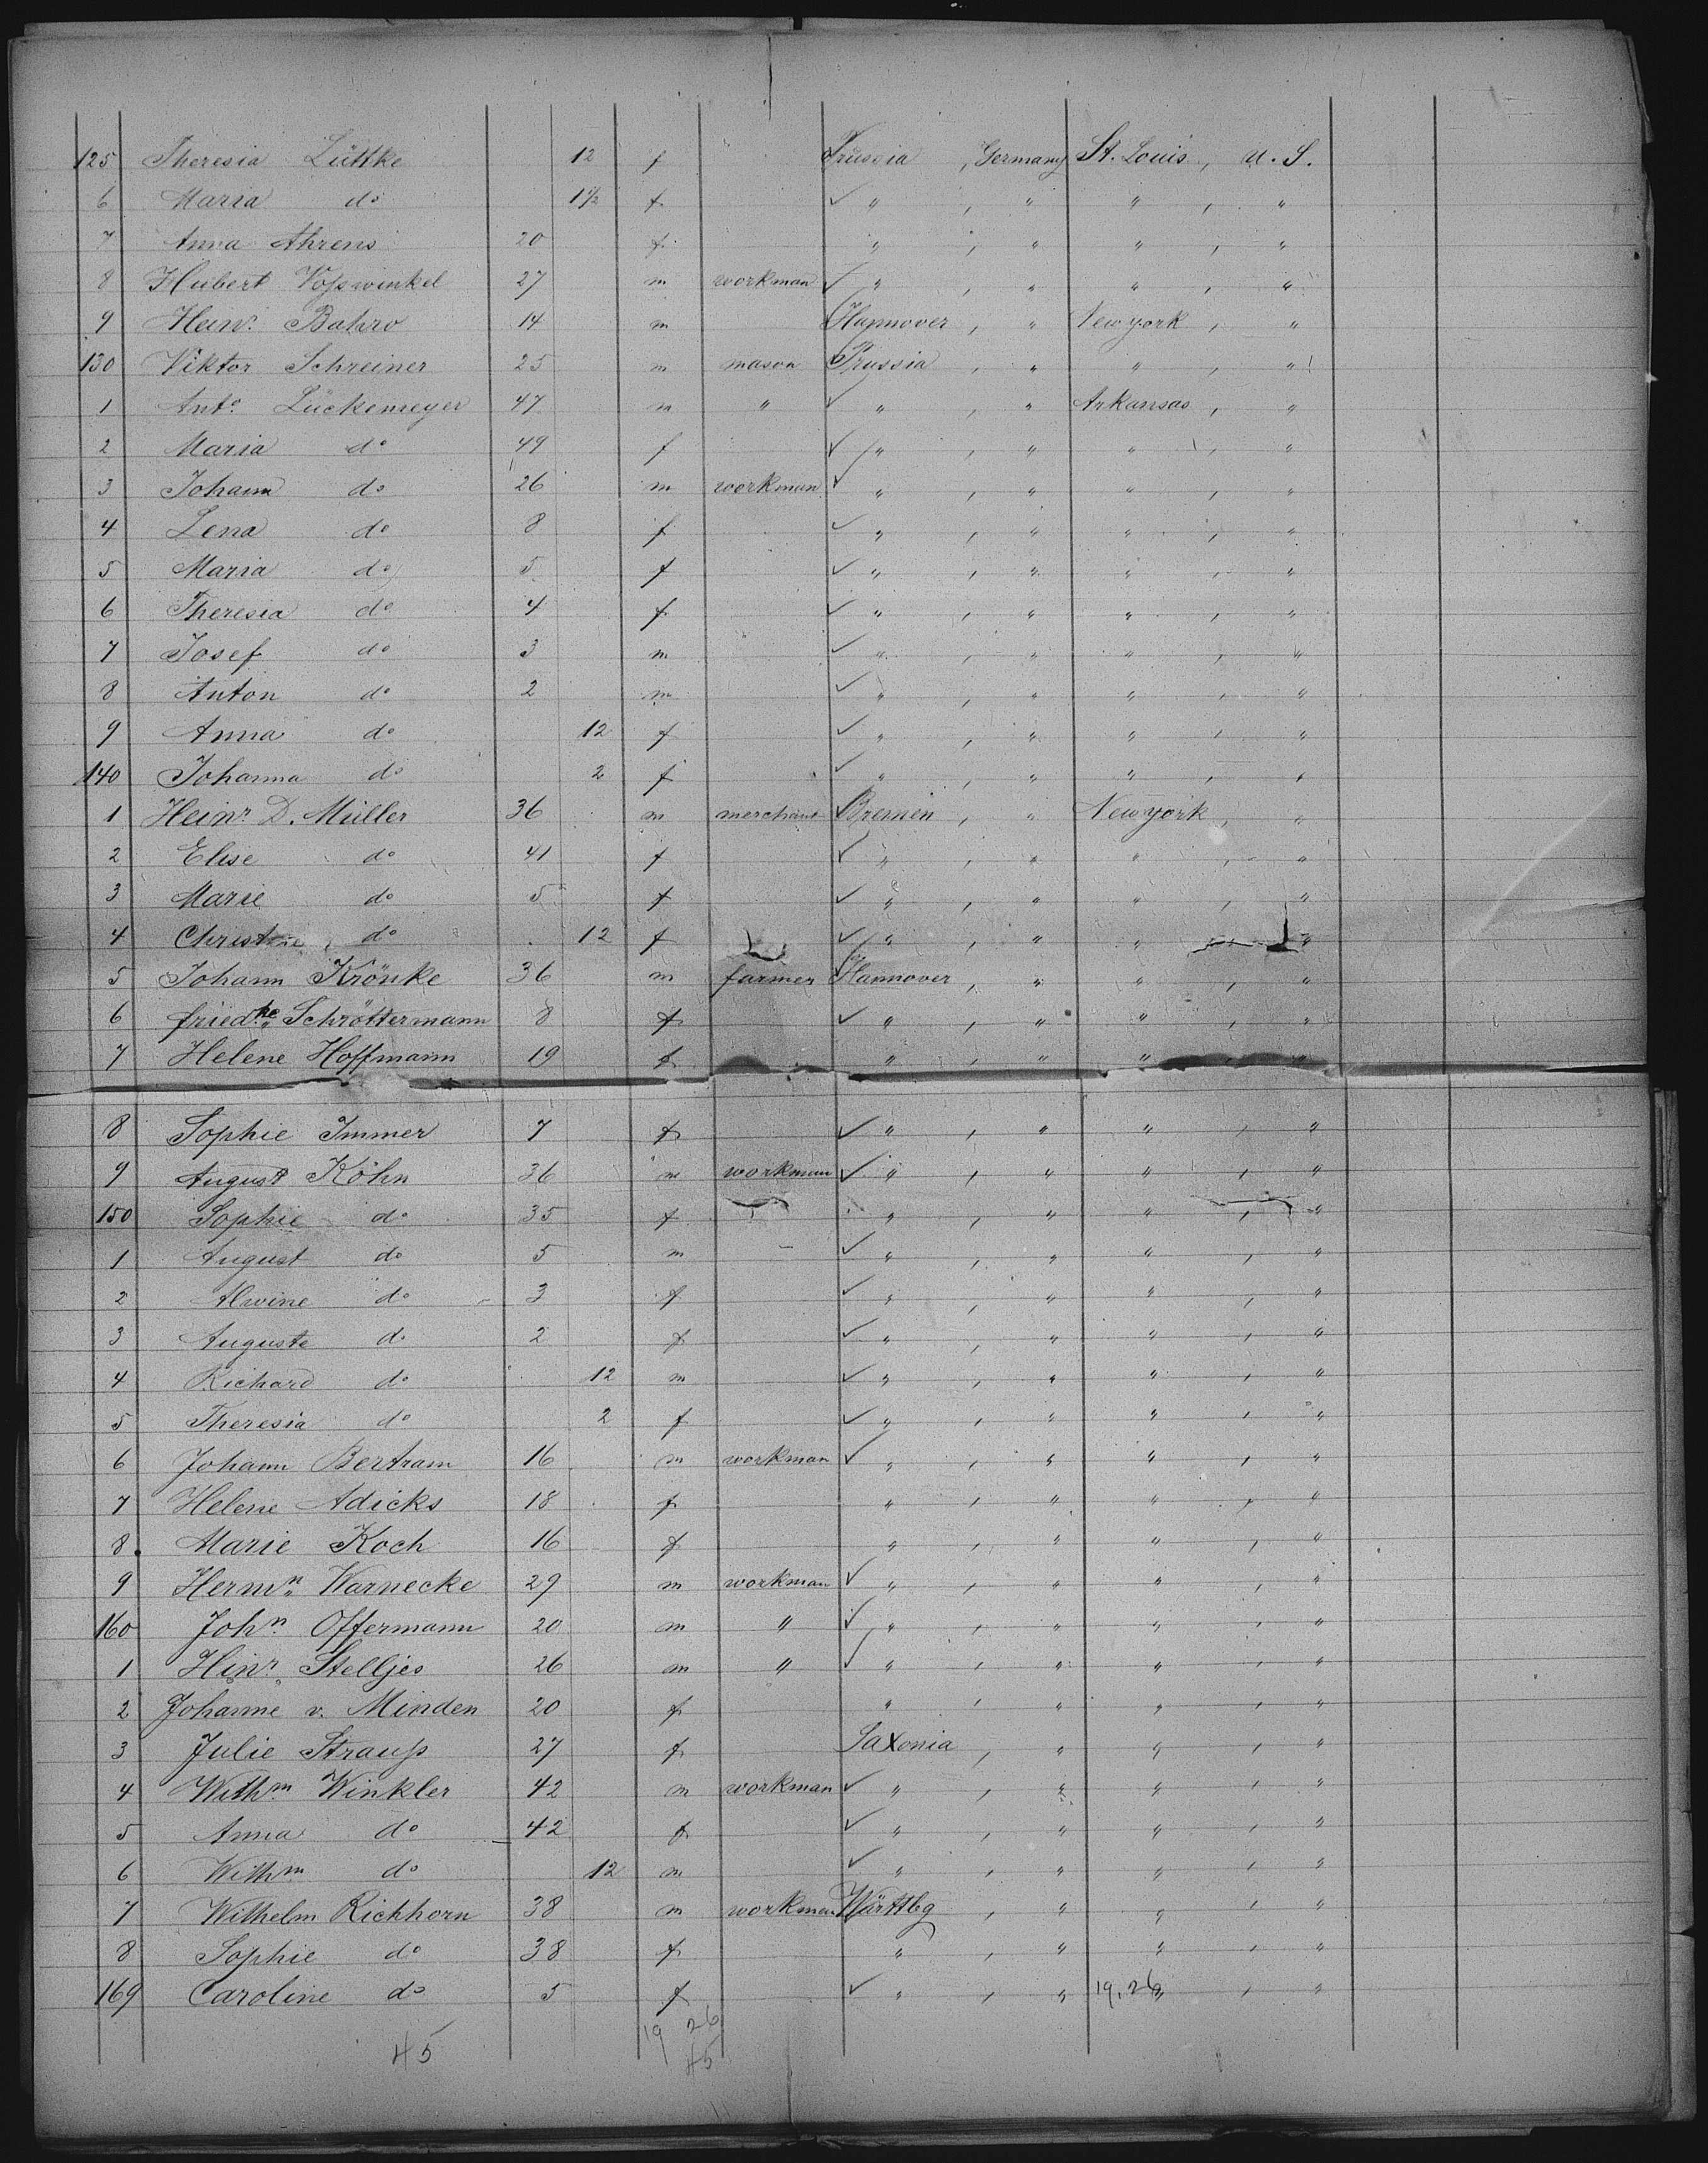 125 Theresia Lüttke 12 f Prussia , Germany St. Louis , U. S.
6 Maria do 1 1/2 f ✓ " , " " , "
7 Anna Ahrens 20 f " , " " , "
8 Hubert Voßwinkel 27 m workman ✓ " , " " , "
9 Heinr. Bahro 14 m Hannover , " Newyork , "
130 Viktor Schreiner 25 m mason Prussia , " " , "
1 Anto. Lückemeyer 47 m " ✓ " , " Arkansas , "
2 Maria do 49 f ✓ " , " " , "
3 Johann do 26 m workman ✓ " , " " , "
4 Lena do 8 f ✓ " , " " , "
5 Maria do 5 f ✓ " , " " , "
6 Theresia do 4 f ✓ " , " " , "
7 Josef do 3 m ✓ " , " " , "
8 Anton do 2 m ✓ " , " " , "
9 Anna do 12 f ✓ " , " " , "
140 Johanna do 2 f ✓ " , " " , "
1 Heinr. D. Müller 36 m merchant ✓ Bremen , " Newyork , "
2 Elise do 41 f ✓ " , " " , "
3 Marie do 5 f ✓ " , " " , "
4 Christine do 12 f ✓ " , " " , "
5 Johann Krönke 36 m farmer Hannover , " " , "
6 Friedke. Schröttermann 8 f ✓ " , " " , "
7 Helene Hoffmann 19 f " , " " , "
8 Sophie Immer 7 f ✓ " , " " , "
9 August Köhn 36 m workman ✓ " , " " , "
150 Sophie do 35 f " , " " , "
1 August do 5 m ✓ " , " " , "
2 Alwine do 3 f ✓ " , " " , "
3 Auguste do 2 f ✓ " , " " , "
4 Richard do 12 m ✓ " , " " , "
5 Theresia do 2 f ✓ " , " " , "
6 Johann Bertram 16 m workman ✓ " , " " , "
7 Helene Adicks 18 f " , " " , "
8 Marie Koch 16 f " , " " , "
9 Hermn. Warnecke 29 m workman ✓ " , " " , "
160 John. Offermann 20 m " ✓ " , " " , "
1 Hinr. Stelljes 26 m " ✓ " , " " , "
2 Johanne v. Minden 20 f " , " " , "
3 Julie Strauß 27 f Saxonia , " " , "
4 Wilhm. Winkler 42 m workman ✓ " , " " , "
5 Anna do 42 f ✓ " , " " , "
6 Wilhm do 12 m ✓ " , " " , "
7 Wilhelm Richhorn 38 m workman Württbg , " " , "
8 Sophie do 38 f " , " " , "
169 Caroline do 5 f ✓ " , " 19.26 " , "
19 26
45 45